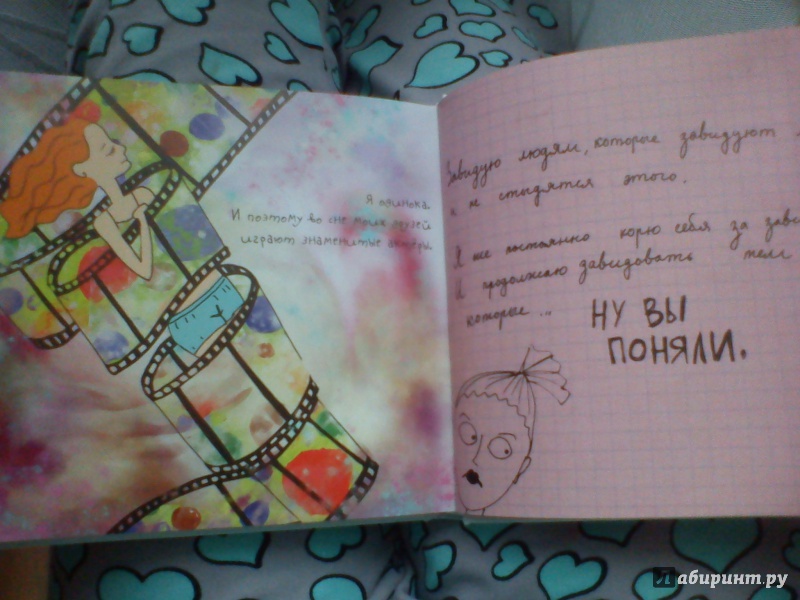 Я одинока.
И поэтому во сне моих друзей
играют знаменитые актёры.
Завидую людям, которые завидуют
и не стыдятся этого.
Я же постоянно корю себя за
и продолжаю завидовать тем
которые...
НУ ВЫ
ПОНЯЛИ.
Лабиринт.ру